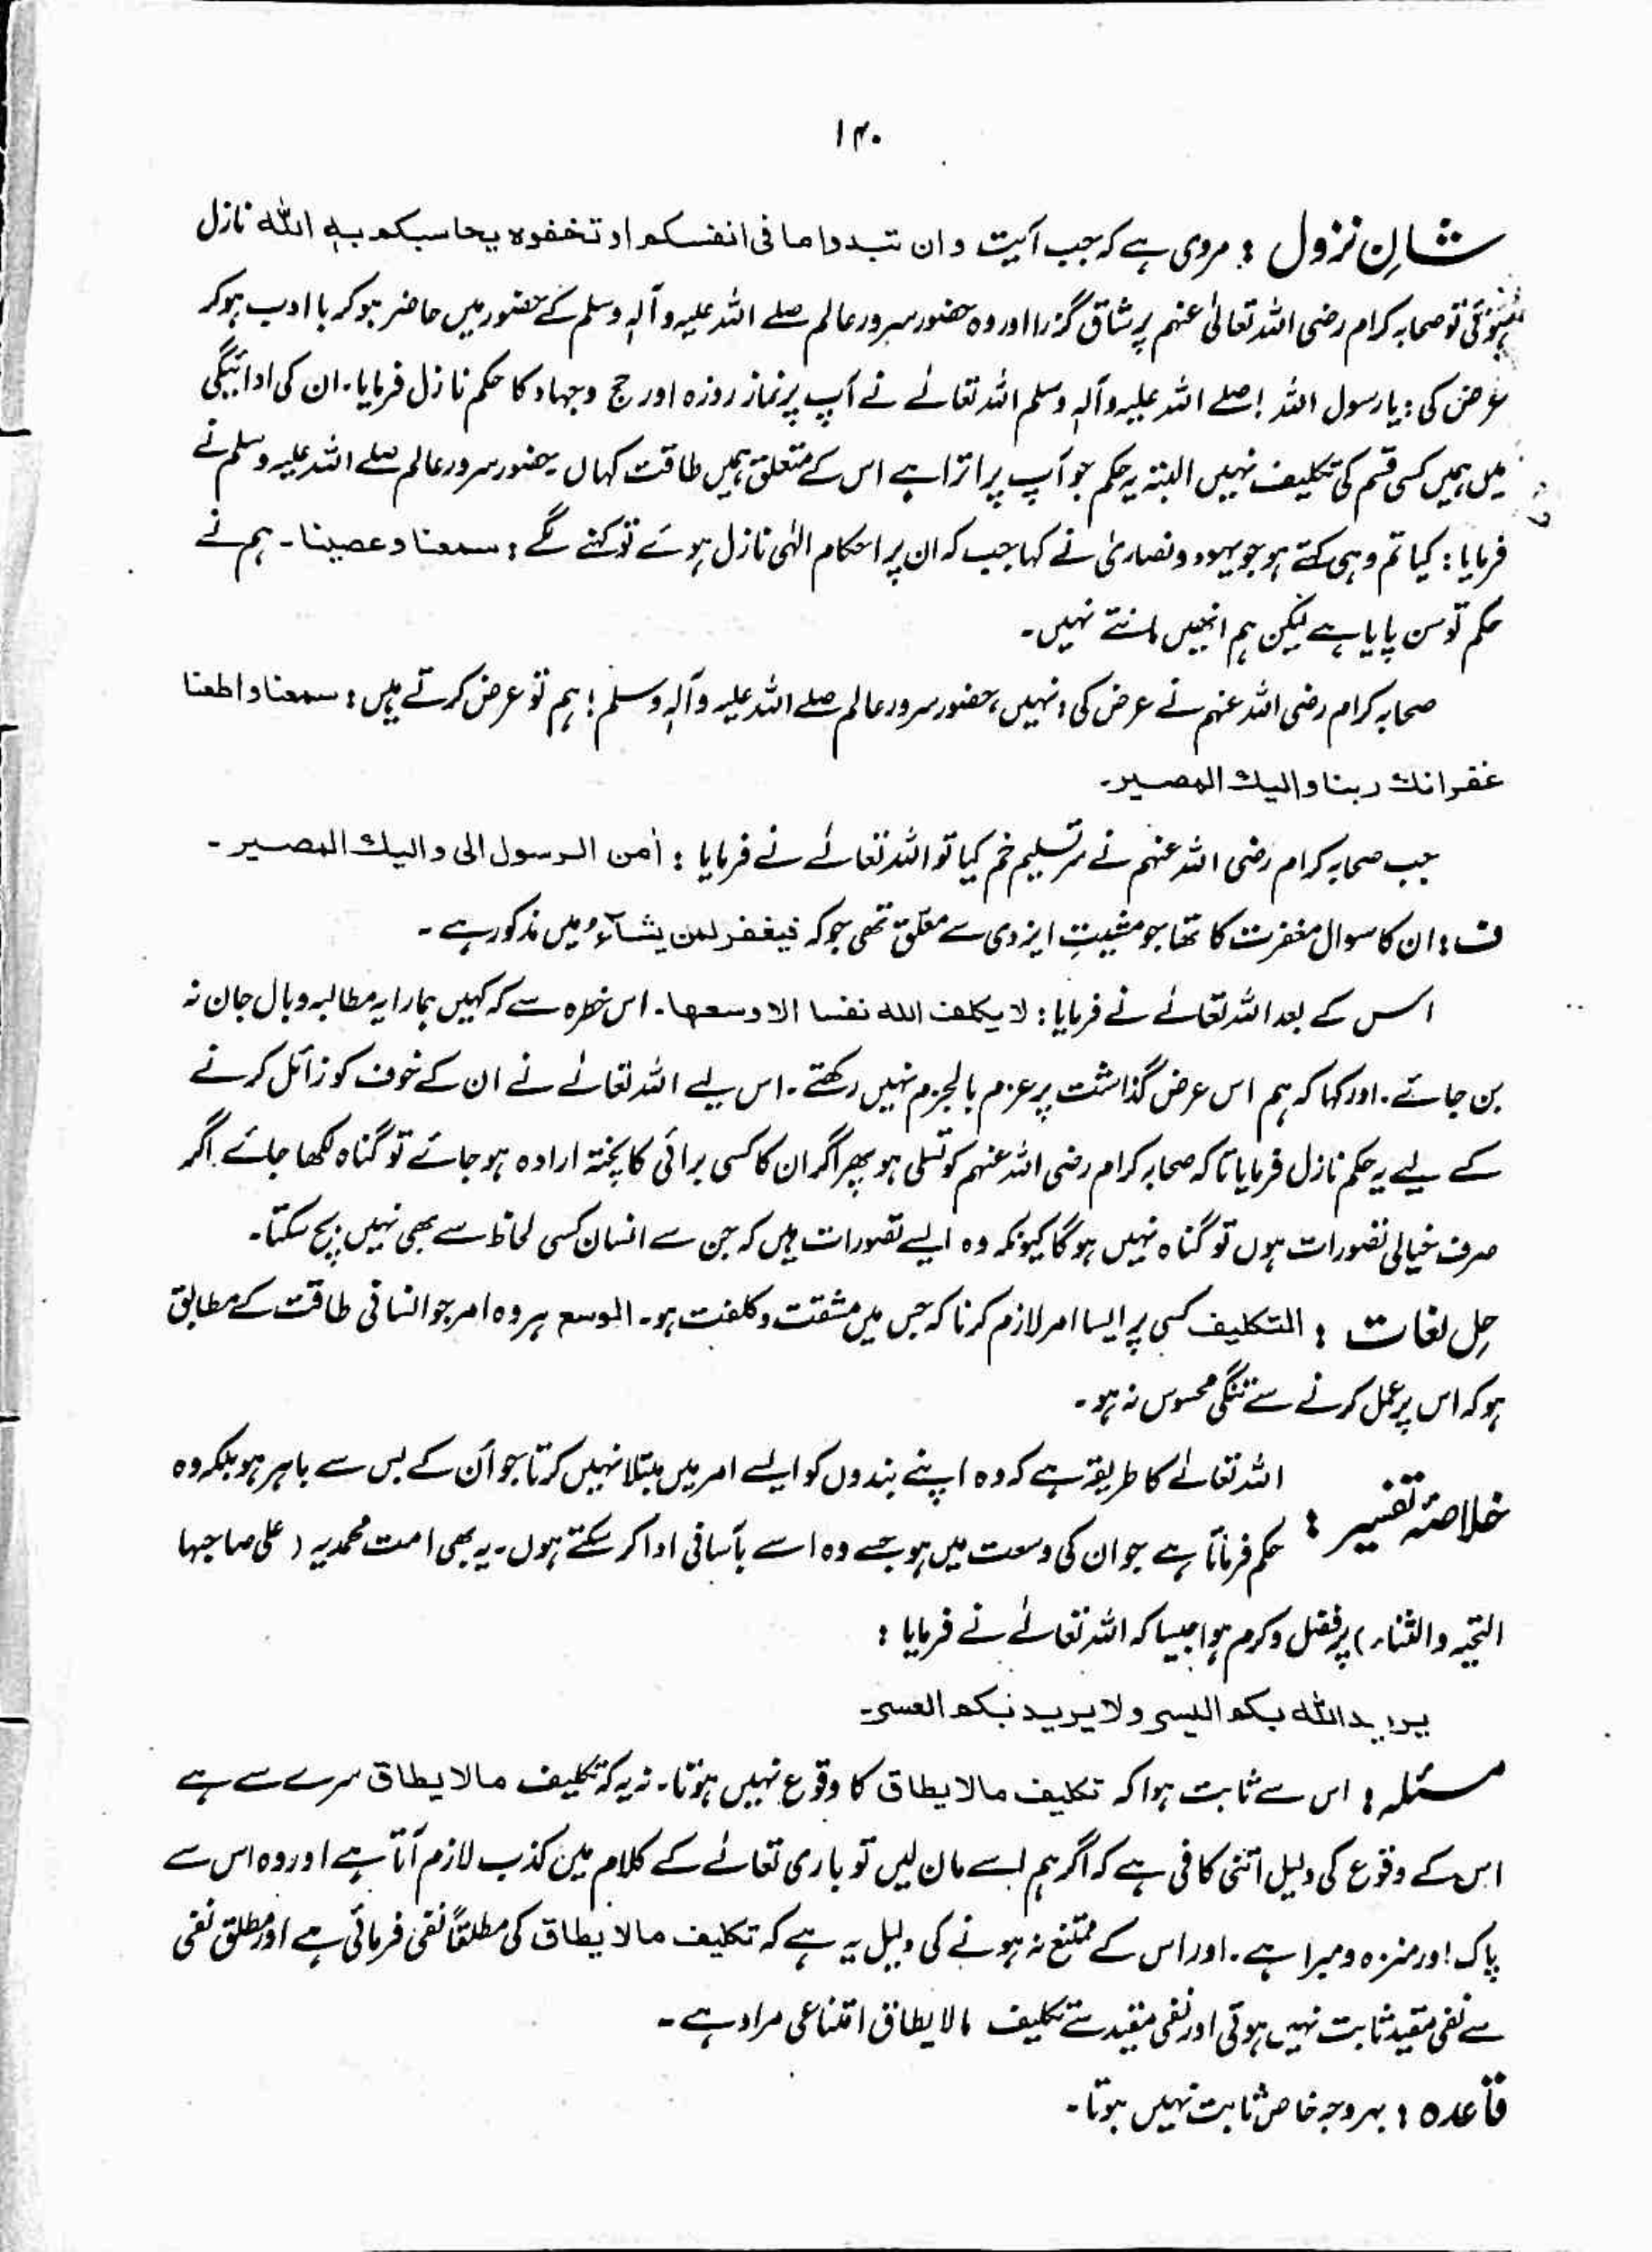 ۱۴۰
شانِ نزول : مروی ہے کہ جب آیت و ان تبدوا ما فی انفسکم او تخفوہ یحاسبکم بہ اللہ نازل
ہوئی تو صحابہ کرام رضی اللہ تعالیٰ عنہم پر شاق گزرا اور وہ حضور سرور عالم صلے اللہ علیہ و آلہٖ وسلم کے حضور میں حاضر ہو کر با ادب ہو کر
عرض کی : یا رسول اللہ ! صلے اللہ علیہ و آلہٖ وسلم اللہ تعالےٰ نے آپ پر نماز روزہ اور حج و جہاد کا حکم نازل فرمایا۔ ان کی ادائیگی
میں ہمیں کسی قسم کی تکلیف نہیں البتہ یہ حکم جو آپ پر اترا ہے اس کے متعلق ہمیں طاقت کہاں۔ حضور سرور عالم صلے اللہ علیہ وسلم نے
فرمایا : کیا تم وہی کہتے ہو جو یہود و نصاریٰ نے کہا جب کہ ان پر احکام الٰہی نازل ہوئے تو کہنے لگے : سمعنا و عصینا۔ ہم نے
حکم تو سن پایا ہے لیکن ہم انہیں مانتے نہیں۔
صحابہ کرام رضی اللہ عنہم نے عرض کی : نہیں، حضور سرور عالم صلے اللہ علیہ و آلہٖ وسلم ! ہم تو عرض کرتے ہیں : سمعنا و اطعنا
غفرانک ربنا و الیک المصیر۔
جب صحابہ کرام رضی اللہ عنہم نے سرتسلیم خم کیا تو اللہ تعالےٰ نے فرمایا : اٰمن الرسول الی و الیک المصیر ۔
ف : ان کا سوال مغفرت کا تھا جو مشیتِ ایزدی سے معلّق تھی جو کہ فیغفر لمن یشآءُ میں مذکور ہے ۔
اس کے بعد اللہ تعالےٰ نے فرمایا : لا یکلف اللہ نفسا الا وسعہا۔ اس خطرہ سے کہ کہیں ہمارا یہ مطالبہ وبال جان نہ
بن جائے۔ اور کہا کہ ہم اس عرض گذاشت پر عزم بالجزم نہیں رکھتے۔ اس لیے اللہ تعالےٰ نے ان کے خوف کو زائل کرنے
کے لیے یہ حکم نازل فرمایا تاکہ صحابہ کرام رضی اللہ عنہم کو تسلی ہو پھر اگر ان کا کسی برائی کا پختہ ارادہ ہو جائے تو گناہ لکھا جائے اگر
صرف خیالی تصورات ہوں تو گناہ نہیں ہوگا کیونکہ وہ ایسے تصورات ہیں کہ جن سے انسان کسی لحاظ سے بھی نہیں بچ سکتا۔
حلِ لغات : التکلیف کسی پر ایسا امر لازم کرنا کہ جس میں مشقت و کلفت ہو۔ الوسع ہر وہ امر جو انسانی طاقت کے مطابق
ہو کہ اس پر عمل کرنے سے تنگی محسوس نہ ہو۔
خلاصۂ تفسیر : اللہ تعالےٰ کا طریقہ ہے کہ وہ اپنے بندوں کو ایسے امر میں مبتلا نہیں کرتا جو اُن کے بس سے باہر ہو بلکہ وہ
حکم فرماتا ہے جو ان کی وسعت میں ہو جسے وہ اسے بآسانی ادا کر سکتے ہوں۔ یہ بھی امت محمدیہ (علی صاحبہا
التحیۃ والثناء) پر فضل و کرم ہوا جیسا کہ اللہ تعالےٰ نے فرمایا :
یرید اللہ بکم الیسر ولا یرید بکم العسر۔
مسئلہ : اس سے ثابت ہوا کہ تکلیف مالا یطاق کا وقوع نہیں ہوتا۔ نہ یہ کہ تکلیف مالا یطاق سرے سے ہے
اس کے وقوع کی دلیل اتنی کافی ہے کہ اگر ہم اسے مان لیں تو باری تعالےٰ کے کلام میں کذب لازم آتا ہے اور وہ اس سے
پاک اور منزہ و مبرا ہے۔ اور اس کے ممتنع نہ ہونے کی دلیل یہ ہے کہ تکلیف مالا یطاق کی مطلقاً نفی فرمائی ہے اور مطلق نفی
سے نفی مقید ثابت نہیں ہوتی اور نفی مقید سے تکلیف مالا یطاق امتناعی مراد ہے ۔
قاعدہ : بہر وجہ خاص ثابت نہیں ہوتا۔